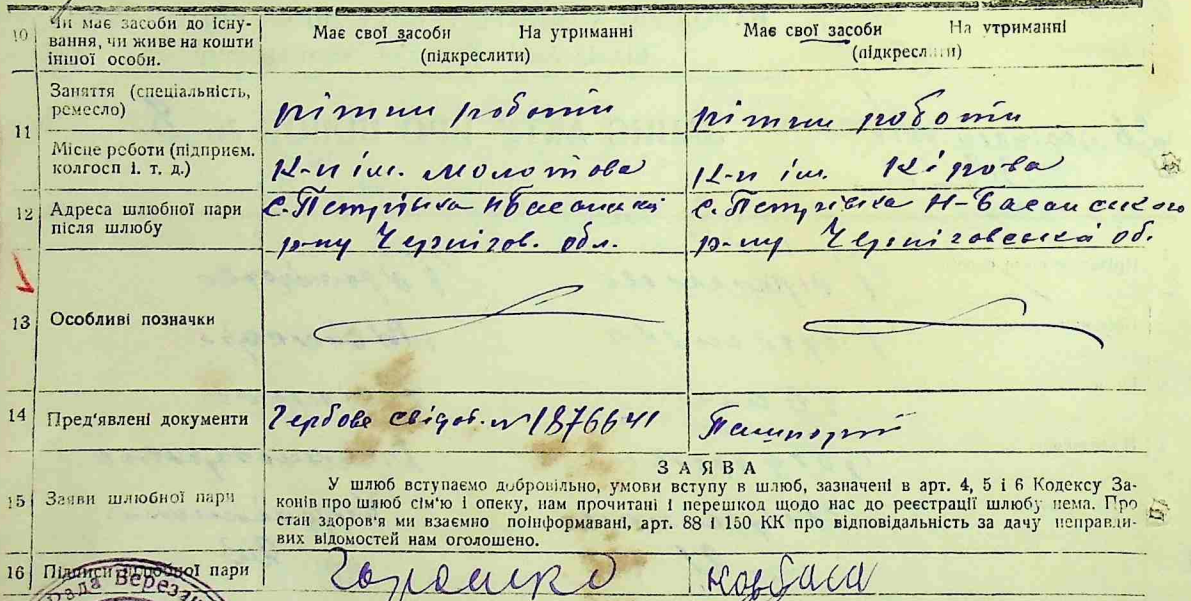 10 Чи має засоби до існування, чи живе на кошти іншої особи.
Має свої засоби На утриманні
(підкреслити)
Має свої засоби На утриманні
(підкреслити)
11 Заняття (спеціальність, ремесло)
рітни роботи
рітни роботи
Місце роботи (підприєм. колгосп і. т. д.)
К-п ім. Молотова
К-п ім. Кірова
12 Адреса шлюбної пари після шлюбу
с. Петрівка Н Басанський
р-ну Чернігов. обл.
с. Петрівка Н-Басанського
р-ну Черніговської об.
13 Особливі позначки
14 Пред'явлені документи
Гербове свідот. № 1876641
Пашпорти
15 Заяви шлюбної пари
ЗАЯВА
У шлюб вступаємо добровільно, умови вступу в шлюб, зазначені в арт. 4, 5 і 6 Кодексу За-
конів про шлюб сім'ю і опеку, нам прочитані і перешкод щодо нас до реєстрації шлюбу нема. Про
стан здоров'я ми взаємно поінформавані, арт. 88 і 150 КК про відповідальність за дачу неправли-
вих відомостей нам оголошено.
16 Підписи шлюбної пари
Рада Береза